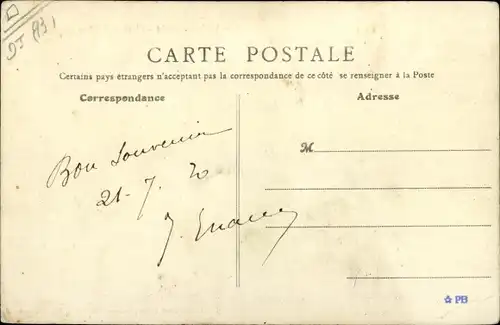 CARTE POSTALE
Certains pays étrangers n'acceptant pas la correspondance de ce côté se renseigner à la Poste
Correspondance
Adresse
M
Bon Souvenir
21-7. 20
J.
☆ PB